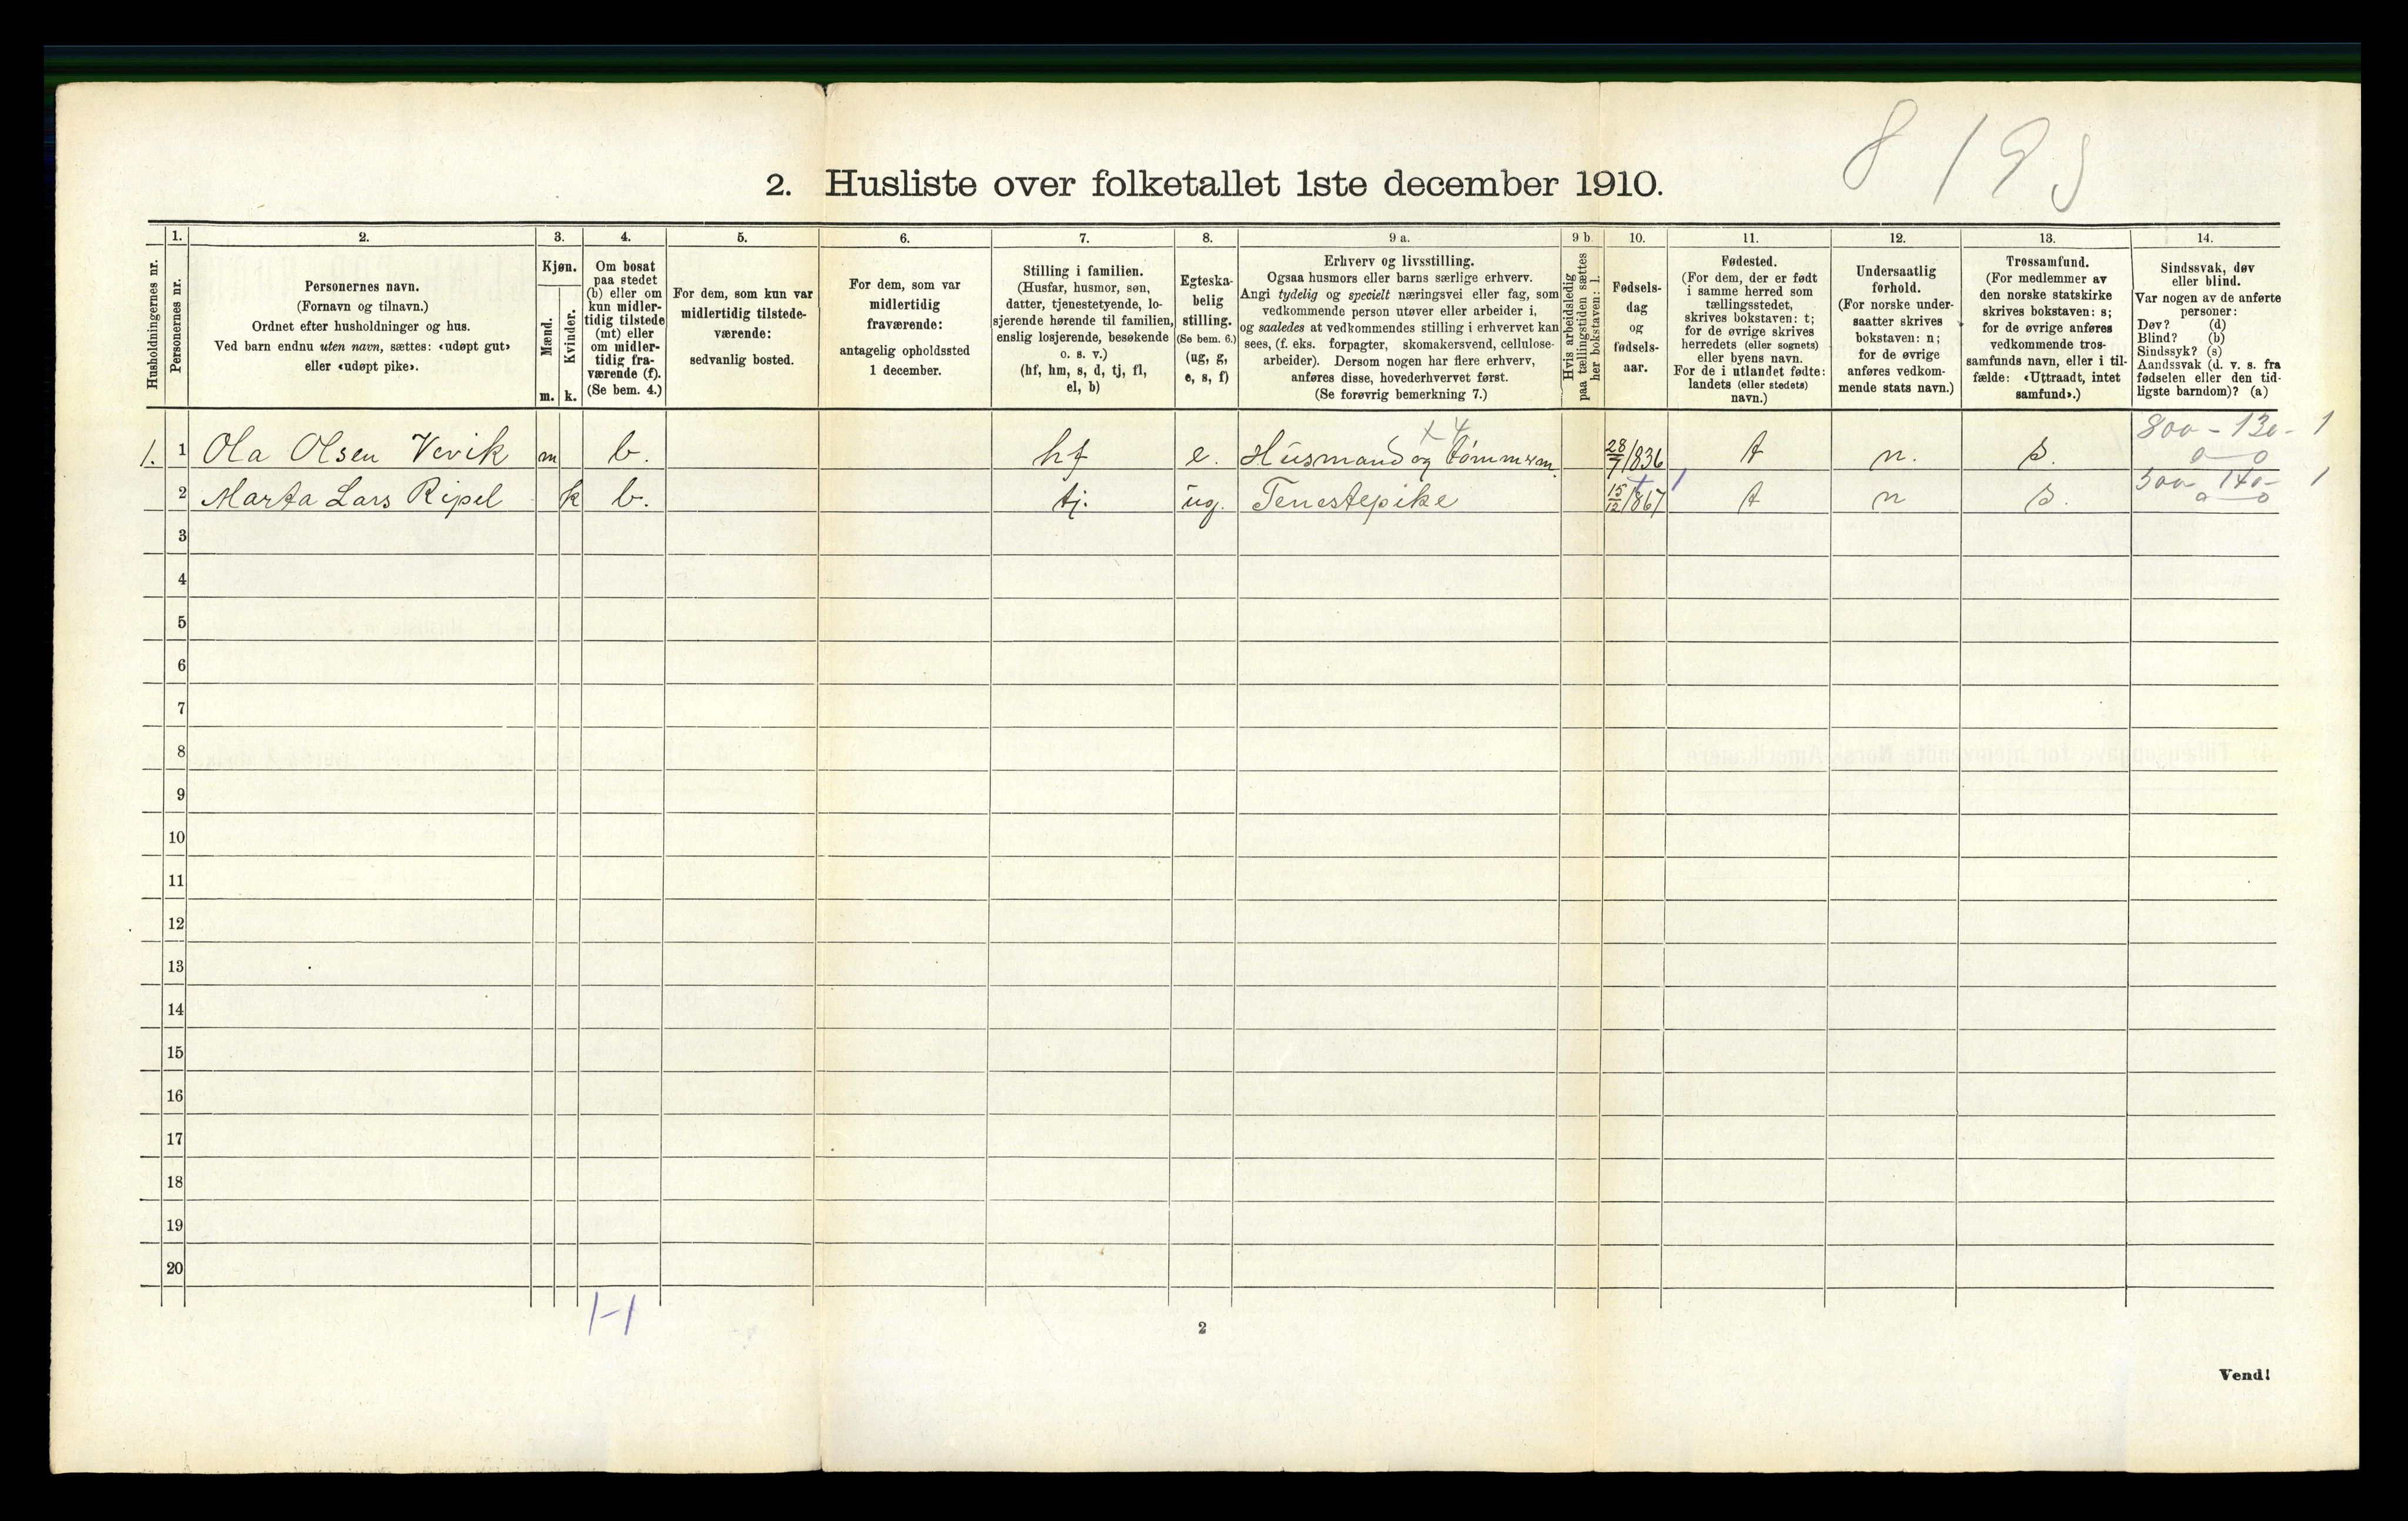 8 193
2. Husliste over folketallet 1ste december 1910.
Husholdningernes nr.
1.
Personernes nr.
2.
Personernes navn.
(Fornavn og tilnavn.)
Ordnet efter husholdninger og hus.
Ved barn endnu uten navn, sættes: «udøpt gut»
eller «udøpt pike».
3.
Kjøn.
Mænd.
Kvinder.
m. k.
4.
Om bosat
paa stedet
(b) eller om
kun midler-
tidig tilstede
(mt) eller
om midler-
tidig fra-
værende (f).
(Se bem. 4.)
5.
For dem, som kun var
midlertidig tilstede-
værende:
sedvanlig bosted.
6.
For dem, som var
midlertidig
fraværende:
antagelig opholdssted
1 december.
7.
Stilling i familien.
(Husfar, husmor, søn,
datter, tjenestetyende, lo-
sjerende hørende til familien,
enslig losjerende, besøkende
o. s. v.)
(hf, hm, s, d, tj, fl,
el, b)
8.
Egteska-
belig
stilling.
(Se bem. 6.)
(ug, g,
e, s, f)
9 a.
Erhverv og livsstilling.
Ogsaa husmors eller barns særlige erhverv.
Angi tydelig og specielt næringsvei eller fag, som
vedkommende person utøver eller arbeider i,
og saaledes at vedkommendes stilling i erhvervet kan
sees, (f. eks. forpagter, skomakersvend, cellulose-
arbeider). Dersom nogen har flere erhverv,
anføres disse, hovederhvervet først.
(Se forøvrig bemerkning 7.)
9 b.
Hvis arbeidsledig
paa tællingstiden sættes
her bokstaven: l.
10.
Fødsels-
dag
og
fødsels-
aar.
11.
Fødested.
(For dem, der er født
i samme herred som
tællingsstedet,
skrives bokstaven: t;
for de øvrige skrives
herredets (eller sognets)
eller byens navn.
For de i utlandet fødte:
landets (eller stedets)
navn.)
12.
Undersaatlig
forhold.
(For norske under-
saatter skrives
bokstaven: n;
for de øvrige
anføres vedkom-
mende stats navn.)
13.
Trossamfund.
(For medlemmer av
den norske statskirke
skrives bokstaven: s;
for de øvrige anføres
vedkommende tros-
samfunds navn, eller i til-
fælde: «Uttraadt, intet
samfund».)
14.
Sindssvak, døv
eller blind.
Var nogen av de anførte
personer:
Døv? (d)
Blind? (b)
Sindssyk? (s)
Aandssvak (d. v. s. fra
fødselen eller den tid-
ligste barndom)? (a)
x 4
800 - 130 - 1
1. 1 Ola Olsen Vevik m b. hf e. Husmand og tømmerm. 28/7 1836 t n. s. 0 0
500 140 - 1
2 Marta Lars Ripel k b. tj. ug. Tenestepike 15/12 1867 t n s. 0 0
3
4
5
6
7
8
9
10
11
12
13
14
15
16
17
18
19
20
1-1
2
Vend!